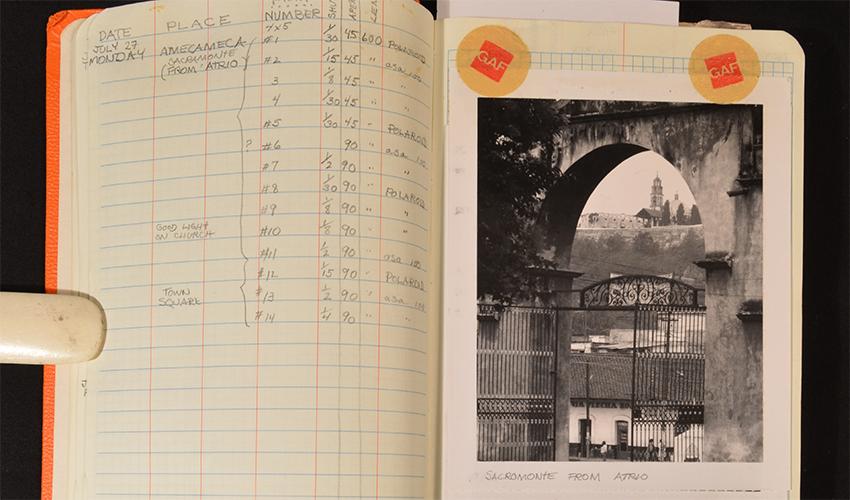 DATE PLACE NUMBER
JULY 27 AMECAMECA 4x5
MONDAY SACROMONTE #1 1/30 45 600 POLAROID
(FROM ATRIO) #2 1/15 45 " asa 100
3 1/8 45 " "
4 1/30 45 " "
#5 1/30 45 " POLAROID
? #6 90 " asa 100
#7 1/2 90 " "
#8 1/30 90 " POLAROID
#9 1/8 90 " "
GOOD LIGHT
ON CHURCH #10 1/8 90 "
#11 1/2 90 " asa 100
#12 1/15 90 " POLAROID
TOWN
SQUARE #13 1/2 90 " asa 100
#14 1/4 90 " "
GAF
GAF
SACROMONTE FROM ATRIO